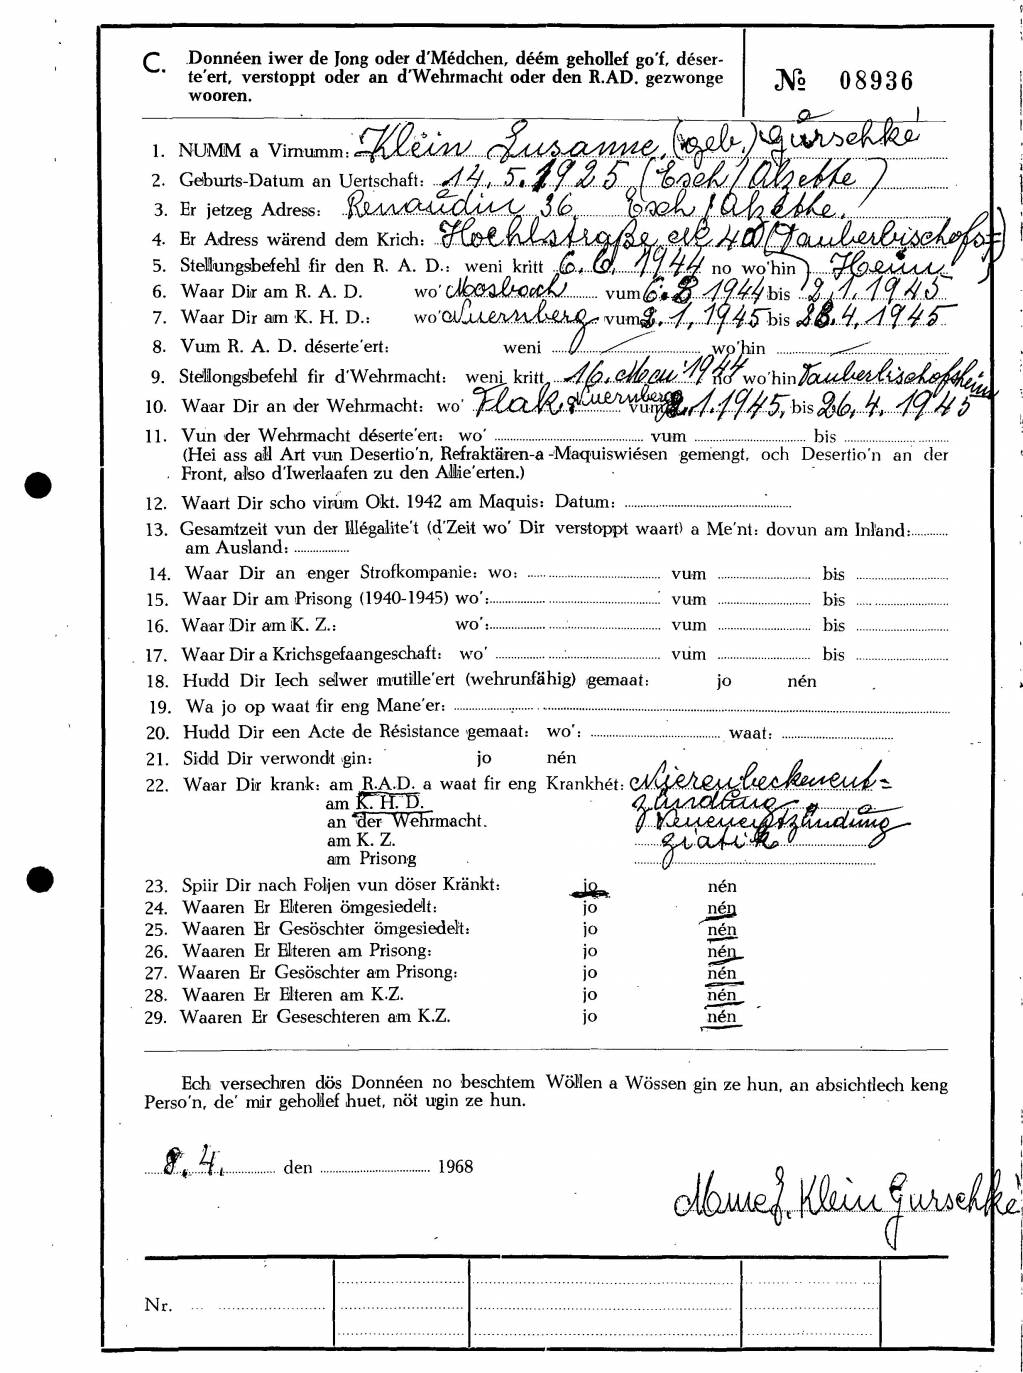 C. Donnéen iwer de Jong oder d'Médchen, déém gehollef go'f, déser-
te'ert, verstoppt oder an d'Wehrmacht oder den R.AD. gezwonge
wooren.
№ 08936
1. NUMM a Virnumm: Klein Susanne, (geb.) Gurschké
2. Geburts-Datum an Uertschaft: 14. 5. 1925 (Esch/Alzette)
3. Er jetzeg Adress: Renaudin 36, Esch/Alzette.
4. Er Adress wärend dem Krich: Hochlstraße 40 (Tauberbischofs=
5. Stellungsbefehl fir den R. A. D.: weni kritt 6. 6. 1944 no wo'hin Heim
6. Waar Dir am R. A. D. wo' Mosbach vum 6. 8 1944 bis 2. 1. 1945
7. Waar Dir am K. H. D.: wo' Nuernberg vum 2. 1, 1945 bis 28. 4, 1945
8. Vum R. A. D. déserte'ert: weni wo'hin
9. Stellongsbefehl fir d'Wehrmacht: weni kritt 16. Mai 1944 no wo'hin Tauberbischofsheim
10. Waar Dir an der Wehrmacht: wo' Flak, Nuernberg vum 2. 1. 1945, bis 26. 4. 1945
11. Vun der Wehrmacht déserte'ert: wo' vum bis
(Hei ass all Art vun Desertio'n, Refraktären-a -Maquiswiésen gemengt, och Desertio'n an der
Front, also d'Iwerlaafen zu den Allie'erten.)
12. Waart Dir scho virum Okt. 1942 am Maquis: Datum:
13. Gesamtzeit vun der Illégalite't (d'Zeit wo' Dir verstoppt waart) a Me'nt: dovun am Inland:
am Ausland:
14. Waar Dir an enger Strofkompanie: wo: vum bis
15. Waar Dir am Prisong (1940-1945) wo': vum bis
16. Waar Dir am K. Z.: wo': vum bis
17. Waar Dir a Krichsgefaangeschaft: wo' vum bis
18. Hudd Dir Iech selwer mutille'ert (wehrunfähig) gemaat: jo nén
19. Wa jo op waat fir eng Mane'er:
20. Hudd Dir een Acte de Résistance gemaat: wo': waat:
21. Sidd Dir verwondt gin: jo nén
22. Waar Dir krank: am R.A.D. a waat fir eng Krankhét: Nierenbeckenent=
am K. H. D. zündung
an der Wehrmacht. Venenentzündung
am K. Z. ziatik
am Prisong
23. Spiir Dir nach Foljen vun döser Kränkt: jo nén
24. Waaren Er Elteren ömgesiedelt: jo nén
25. Waaren Er Gesöschter ömgesiedelt: jo nén
26. Waaren Er Elteren am Prisong: jo nén
27. Waaren Er Gesöschter am Prisong: jo nén
28. Waaren Er Elteren am K.Z. jo nén
29. Waaren Er Geseschteren am K.Z. jo nén
Ech versechren dös Donnéen no beschtem Wöllen a Wössen gin ze hun, an absichtlech keng
Perso'n, de' mir gehollef huet, nöt ugin ze hun.
8. 4. den 1968
Mme J. Klein Gurschké
Nr.